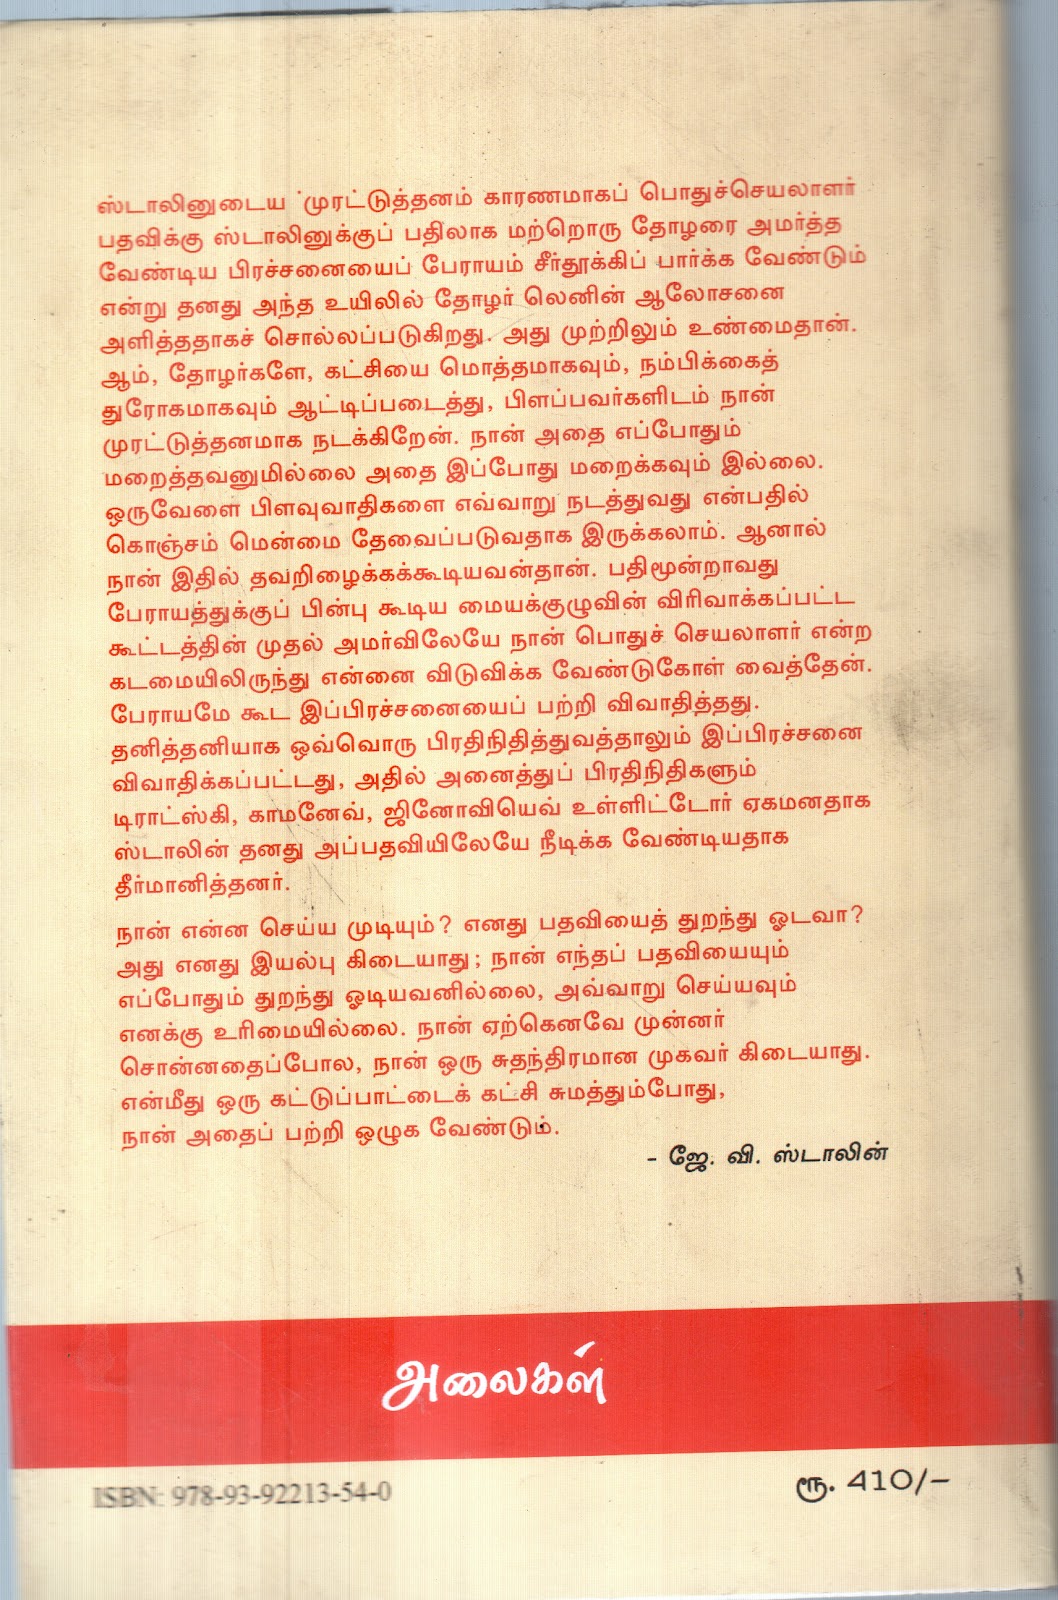 ஸ்டாலினுடைய 'முரட்டுத்தனம் காரணமாகப் பொதுச்செயலாளர்
பதவிக்கு ஸ்டாலினுக்குப் பதிலாக மற்றொரு தோழரை அமர்த்த
வேண்டிய பிரச்சனையைப் பேராயம் சீர்தூக்கிப் பார்க்க வேண்டும்
என்று தனது அந்த உயிலில் தோழர் லெனின் ஆலோசனை
அளித்ததாகச் சொல்லப்படுகிறது. அது முற்றிலும் உண்மைதான்.
ஆம், தோழர்களே, கட்சியை மொத்தமாகவும், நம்பிக்கைத்
துரோகமாகவும் ஆட்டிப்படைத்து, பிளப்பவர்களிடம் நான்
முரட்டுத்தனமாக நடக்கிறேன். நான் அதை எப்போதும்
மறைத்தவனுமில்லை அதை இப்போது மறைக்கவும் இல்லை.
ஒருவேளை பிளவுவாதிகளை எவ்வாறு நடத்துவது என்பதில்
கொஞ்சம் மென்மை தேவைப்படுவதாக இருக்கலாம். ஆனால்
நான் இதில் தவறிழைக்கக்கூடியவன்தான். பதிமூன்றாவது
பேராயத்துக்குப் பின்பு கூடிய மையக்குழுவின் விரிவாக்கப்பட்ட
கூட்டத்தின் முதல் அமர்விலேயே நான் பொதுச் செயலாளர் என்ற
கடமையிலிருந்து என்னை விடுவிக்க வேண்டுகோள் வைத்தேன்.
பேராயமே கூட இப்பிரச்சனையைப் பற்றி விவாதித்தது.
தனித்தனியாக ஒவ்வொரு பிரதிநிதித்துவத்தாலும் இப்பிரச்சனை
விவாதிக்கப்பட்டது, அதில் அனைத்துப் பிரதிநிதிகளும்
டிராட்ஸ்கி, காமனேவ், ஜினோவியெவ் உள்ளிட்டோர் ஏகமனதாக
ஸ்டாலின் தனது அப்பதவியிலேயே நீடிக்க வேண்டியதாக
தீர்மானித்தனர்.
நான் என்ன செய்ய முடியும்? எனது பதவியைத் துறந்து ஓடவா?
அது எனது இயல்பு கிடையாது; நான் எந்தப் பதவியையும்
எப்போதும் துறந்து ஓடியவனில்லை, அவ்வாறு செய்யவும்
எனக்கு உரிமையில்லை. நான் ஏற்கெனவே முன்னர்
சொன்னதைப்போல, நான் ஒரு சுதந்திரமான முகவர் கிடையாது.
என்மீது ஒரு கட்டுப்பாட்டைக் கட்சி சுமத்தும்போது,
நான் அதைப் பற்றி ஒழுக வேண்டும்.
- ஜே. வி. ஸ்டாலின்
அலைகள்
ISBN: 978-93-92213-54-0
ரூ. 410/-